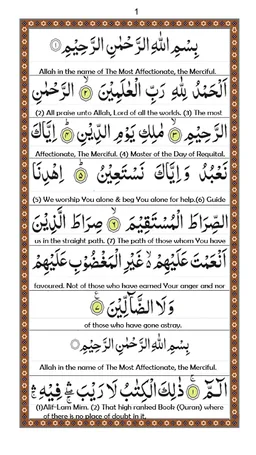 1
بِسْمِ اللّٰهِ الرَّحْمٰنِ الرَّحِيْمِ ۝١
Allah in the name of The Most Affectionate, the Merciful.
اَلْحَمْدُ لِلّٰهِ رَبِّ الْعٰلَمِيْنَ ۝٢ الرَّحْمٰنِ
(2) All praise unto Allah, Lord of all the worlds. (3) The most
الرَّحِيْمِ ۝٣ مٰلِكِ يَوْمِ الدِّيْنِ ۝٤ اِيَّاكَ
Affectionate, The Merciful. (4) Master of the Day of Requital.
نَعْبُدُ وَ اِيَّاكَ نَسْتَعِيْنُ ۝٥ اِهْدِنَا
(5) We worship You alone & beg You alone for help.(6) Guide
الصِّرَاطَ الْمُسْتَقِيْمَ ۝٦ صِرَاطَ الَّذِيْنَ
us in the straight path. (7) The path of those whom You have
اَنْعَمْتَ عَلَيْهِمْ ۙ غَيْرِ الْمَغْضُوْبِ عَلَيْهِمْ
favoured. Not of those who have earned Your anger and nor
وَلَا الضَّآلِّيْنَ ۝٧
of those who have gone astray.
بِسْمِ اللّٰهِ الرَّحْمٰنِ الرَّحِيْمِ
Allah in the name of The Most Affectionate, the Merciful.
الٓمّٓ ۝١ ذٰلِكَ الْكِتٰبُ لَا رَيْبَ ۛ فِيْهِ ۛ
(1)Alif-Lam Mim. (2) That high ranked Book (Quran) where
of there is no place of doubt in it,